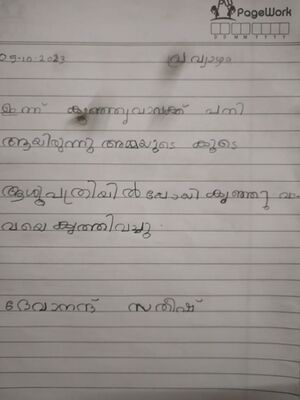 PageWork
DDMMYYYY
05.10.2023 വ്യാഴം
ഇന്ന് കുഞ്ഞുവാവക്ക് പനി
ആയിരുന്നു അമ്മയുടെ കൂടെ
ആശുപത്രിയിൽ പോയി കുഞ്ഞു വാ
വയെ കുത്തിവച്ചു.
ദേവാനന്ദ് സതീഷ്